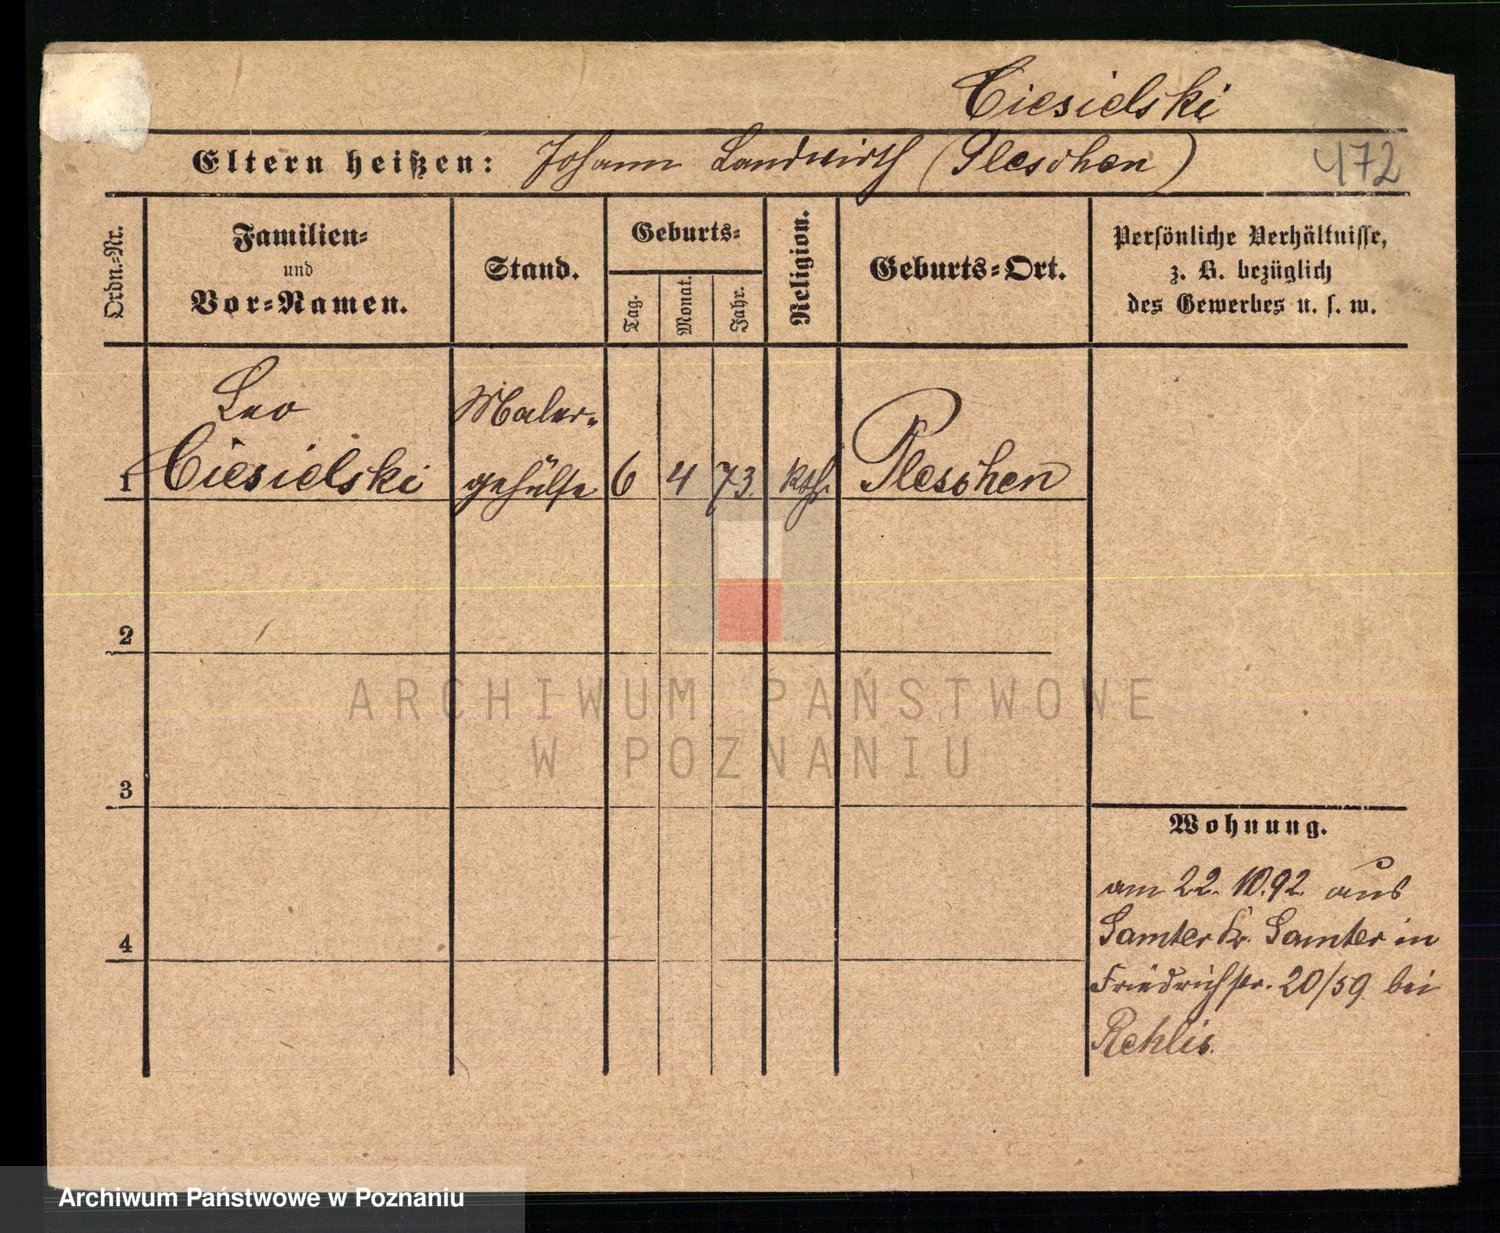 Ciesielski
Eltern heißen: Johann Landwirth (Pleschen)
472
Ordn.-Nr.
Familien-
und
Vor-Namen.
Stand.
Geburts-
Tag.
Monat.
Jahr.
Religion.
Geburts-Ort.
Persönliche Verhältnisse,
z. B. bezüglich
des Gewerbes u. s. w.
1
Leo
Ciesielski
Maler-
gehülfe
6
4
73.
kth.
Pleschen
2
3
4
Wohnung.
am 22. 10. 92. aus
Samter Kr. Samter in
Friedrichstr. 20/59 bei
Rehlis.
ARCHIWUM PAŃSTWOWE
W POZNANIU
Archiwum Państwowe w Poznaniu